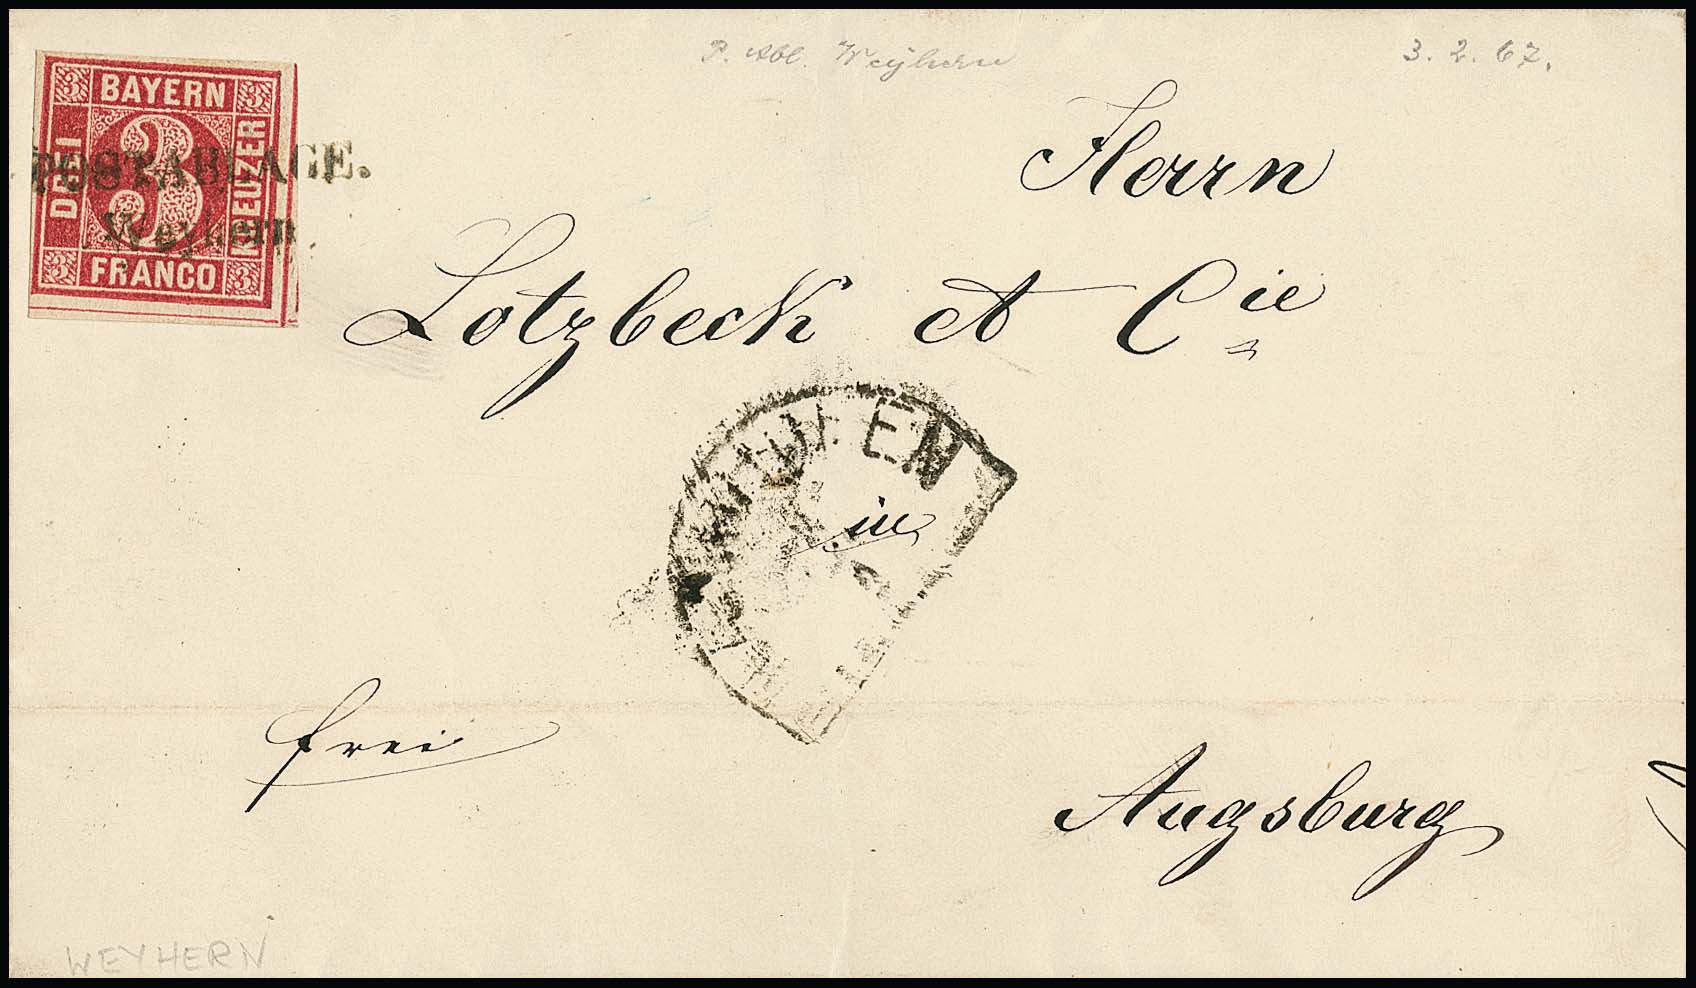 P. Abl. Weyhern
3. 2. 67.
3 BAYERN 3
DREI 3 KREUZER
3 FRANCO 3
POSTABLAGE.
Weyhern
Herrn
Lotzbeck et Cie
in
frei
Augsburg
WEYHERN